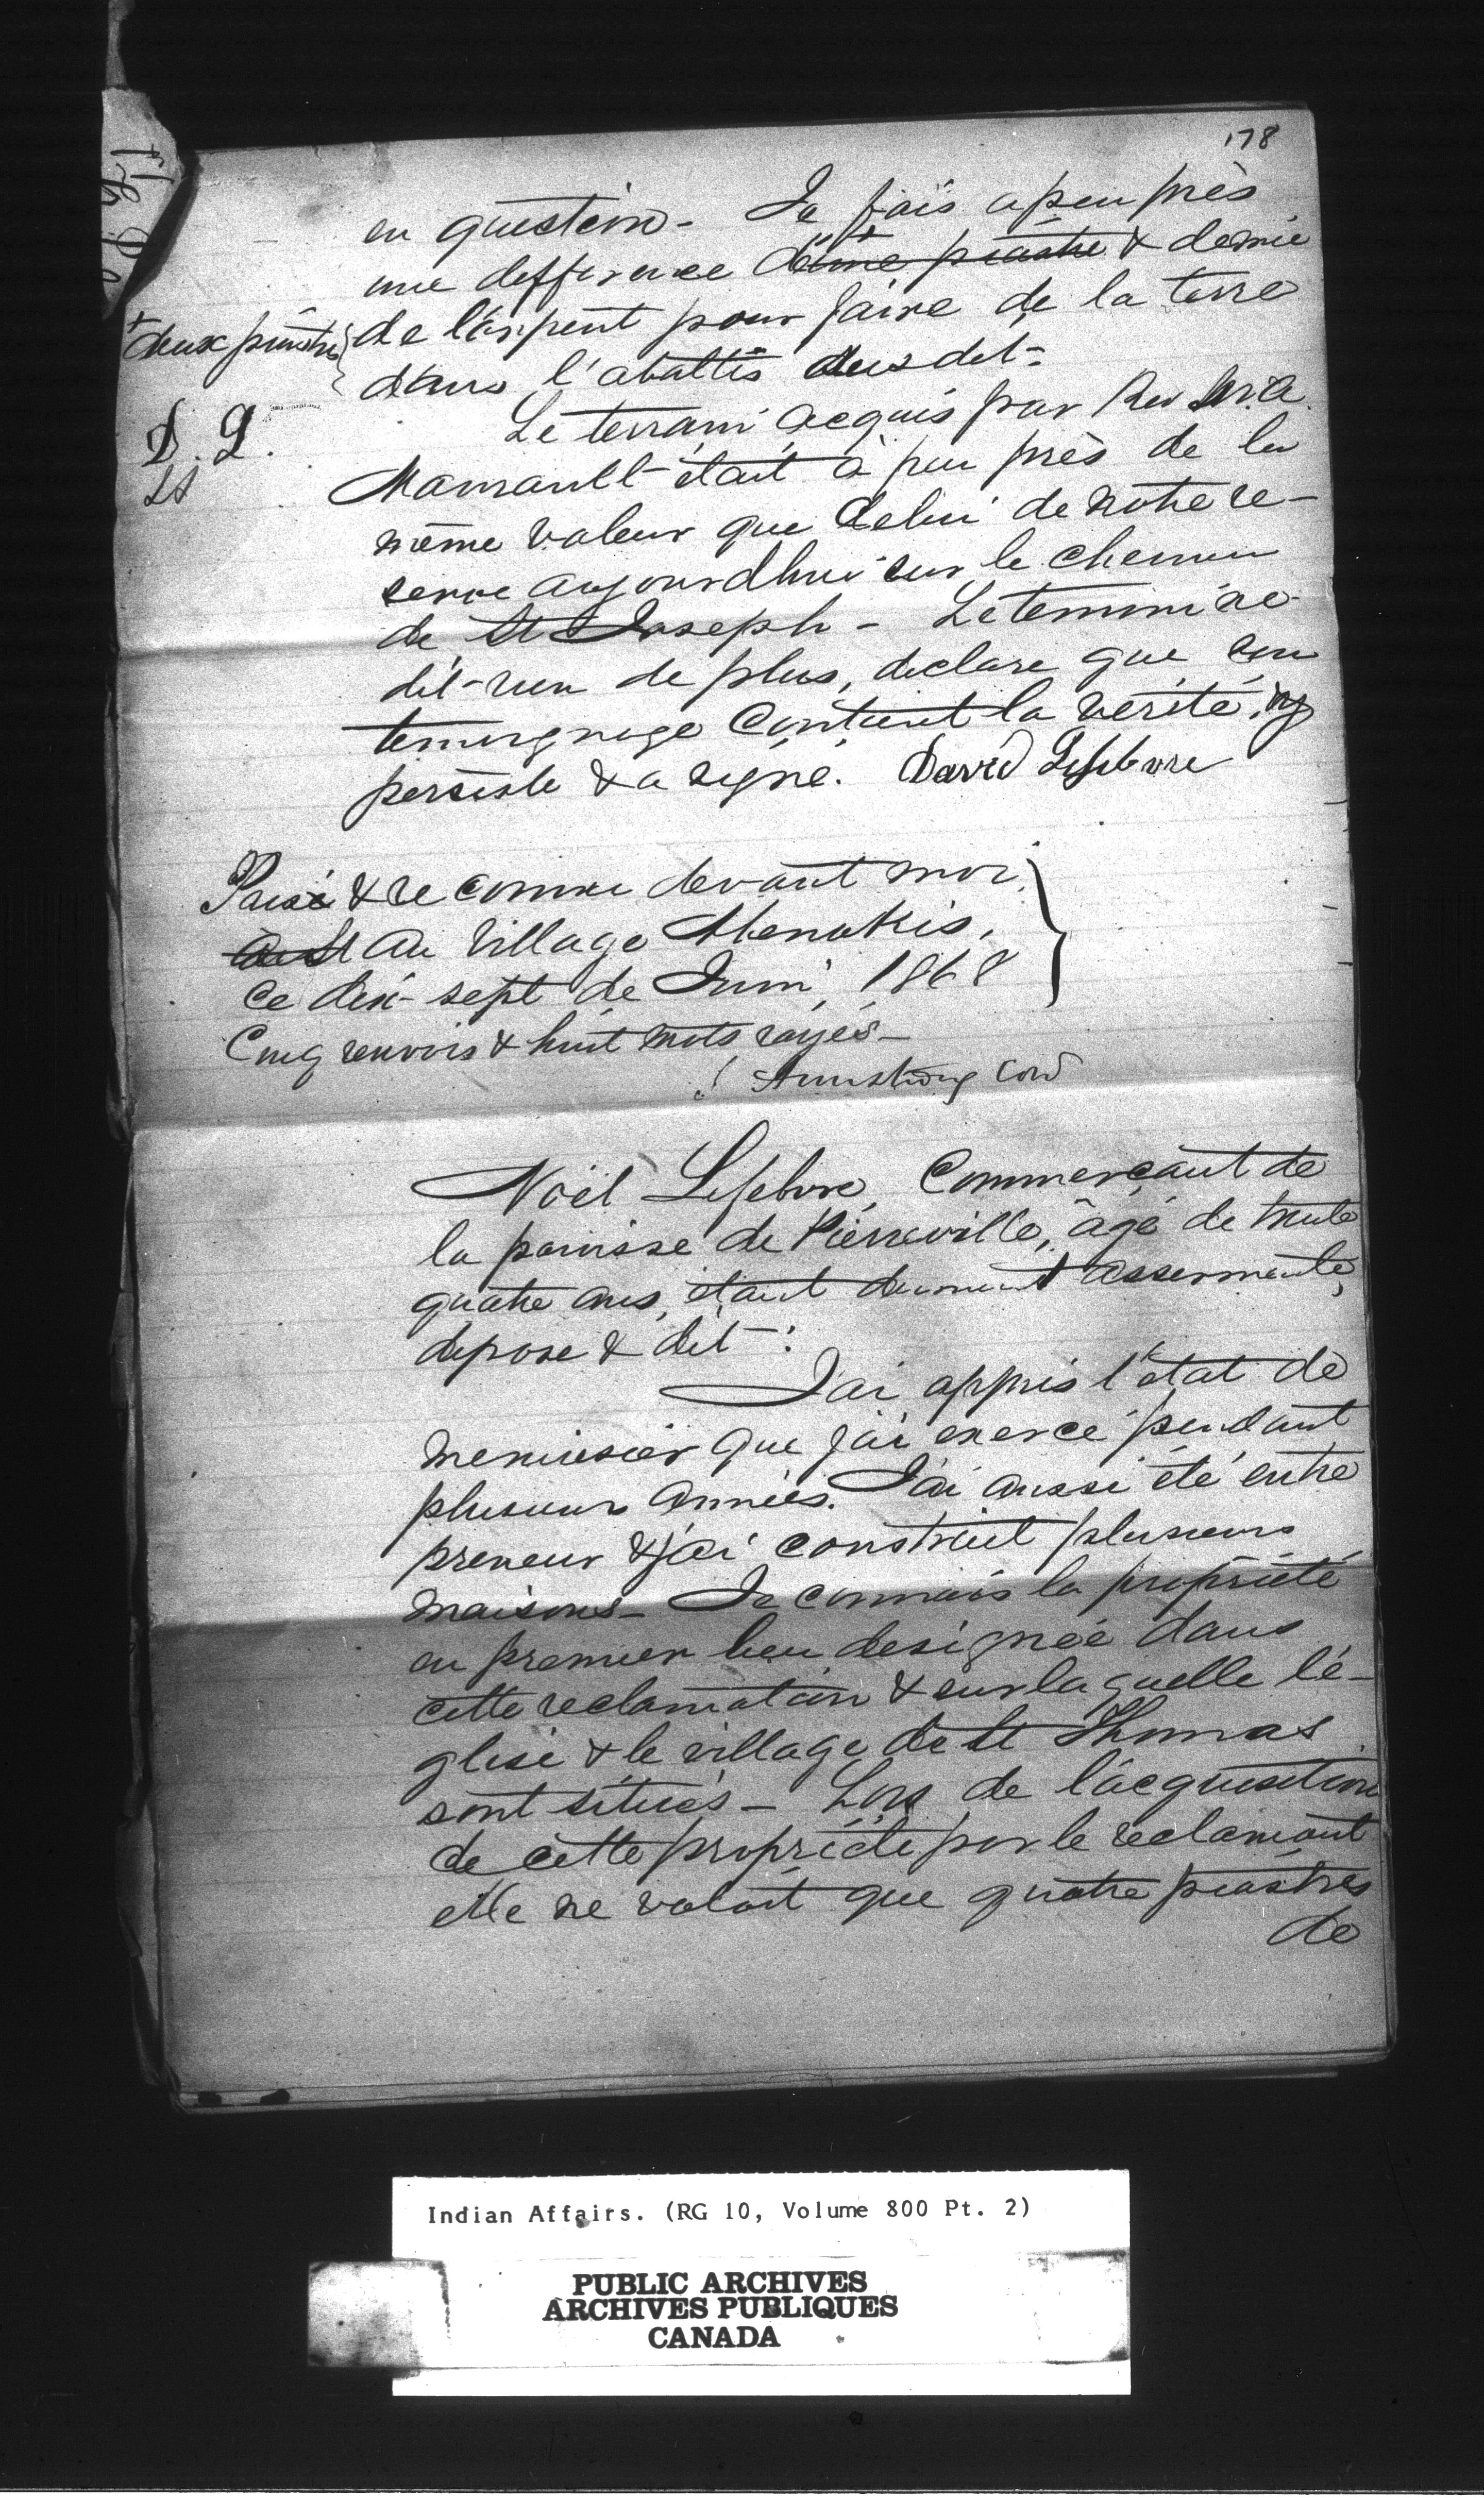 178
en question - Je fais a peu près
une difference d'une piastre & demie
+ deux piastres
de l'arpent pour faire de la terre
dans l'abattis susdit -
D. L.
Le terrain acquis par Rev Mr. A.
Maurault était à peu près de la
même valeur que celui de notre re-
serve aujourdhui sur le chemin
de St Joseph - Le temoin ne
dit rien de plus, declare que son
temoignage contient la verité, y
persiste & a signé. David Lefebvre
Prise & reconnue devant moi
au St au Village Abenakis,
ce dix-sept de Juin, 1868
Cinq renvois & huit mots rayés -
Armstrong Com
Noël Lefebvre, Commerçant de
la paroisse de Pierreville, âgé de trente
quatre ans, étant dument assermenté,
depose & dit :
J'ai appris l'état de
menuisier que j'ai exercé pendant
plusieurs années. J'ai aussi été entre
preneur & j'ai construit plusieurs
maisons - Je connais la propriété
en premier lieu designée dans
cette reclamation & sur laquelle l'é-
glise & le village de St Thomas
sont situés - Lors de l'acquisition
de cette propriété par le reclamant
elle ne valait que quatre piastres
de
Indian Affairs. (RG 10, Volume 800 Pt. 2)
PUBLIC ARCHIVES
ARCHIVES PUBLIQUES
CANADA